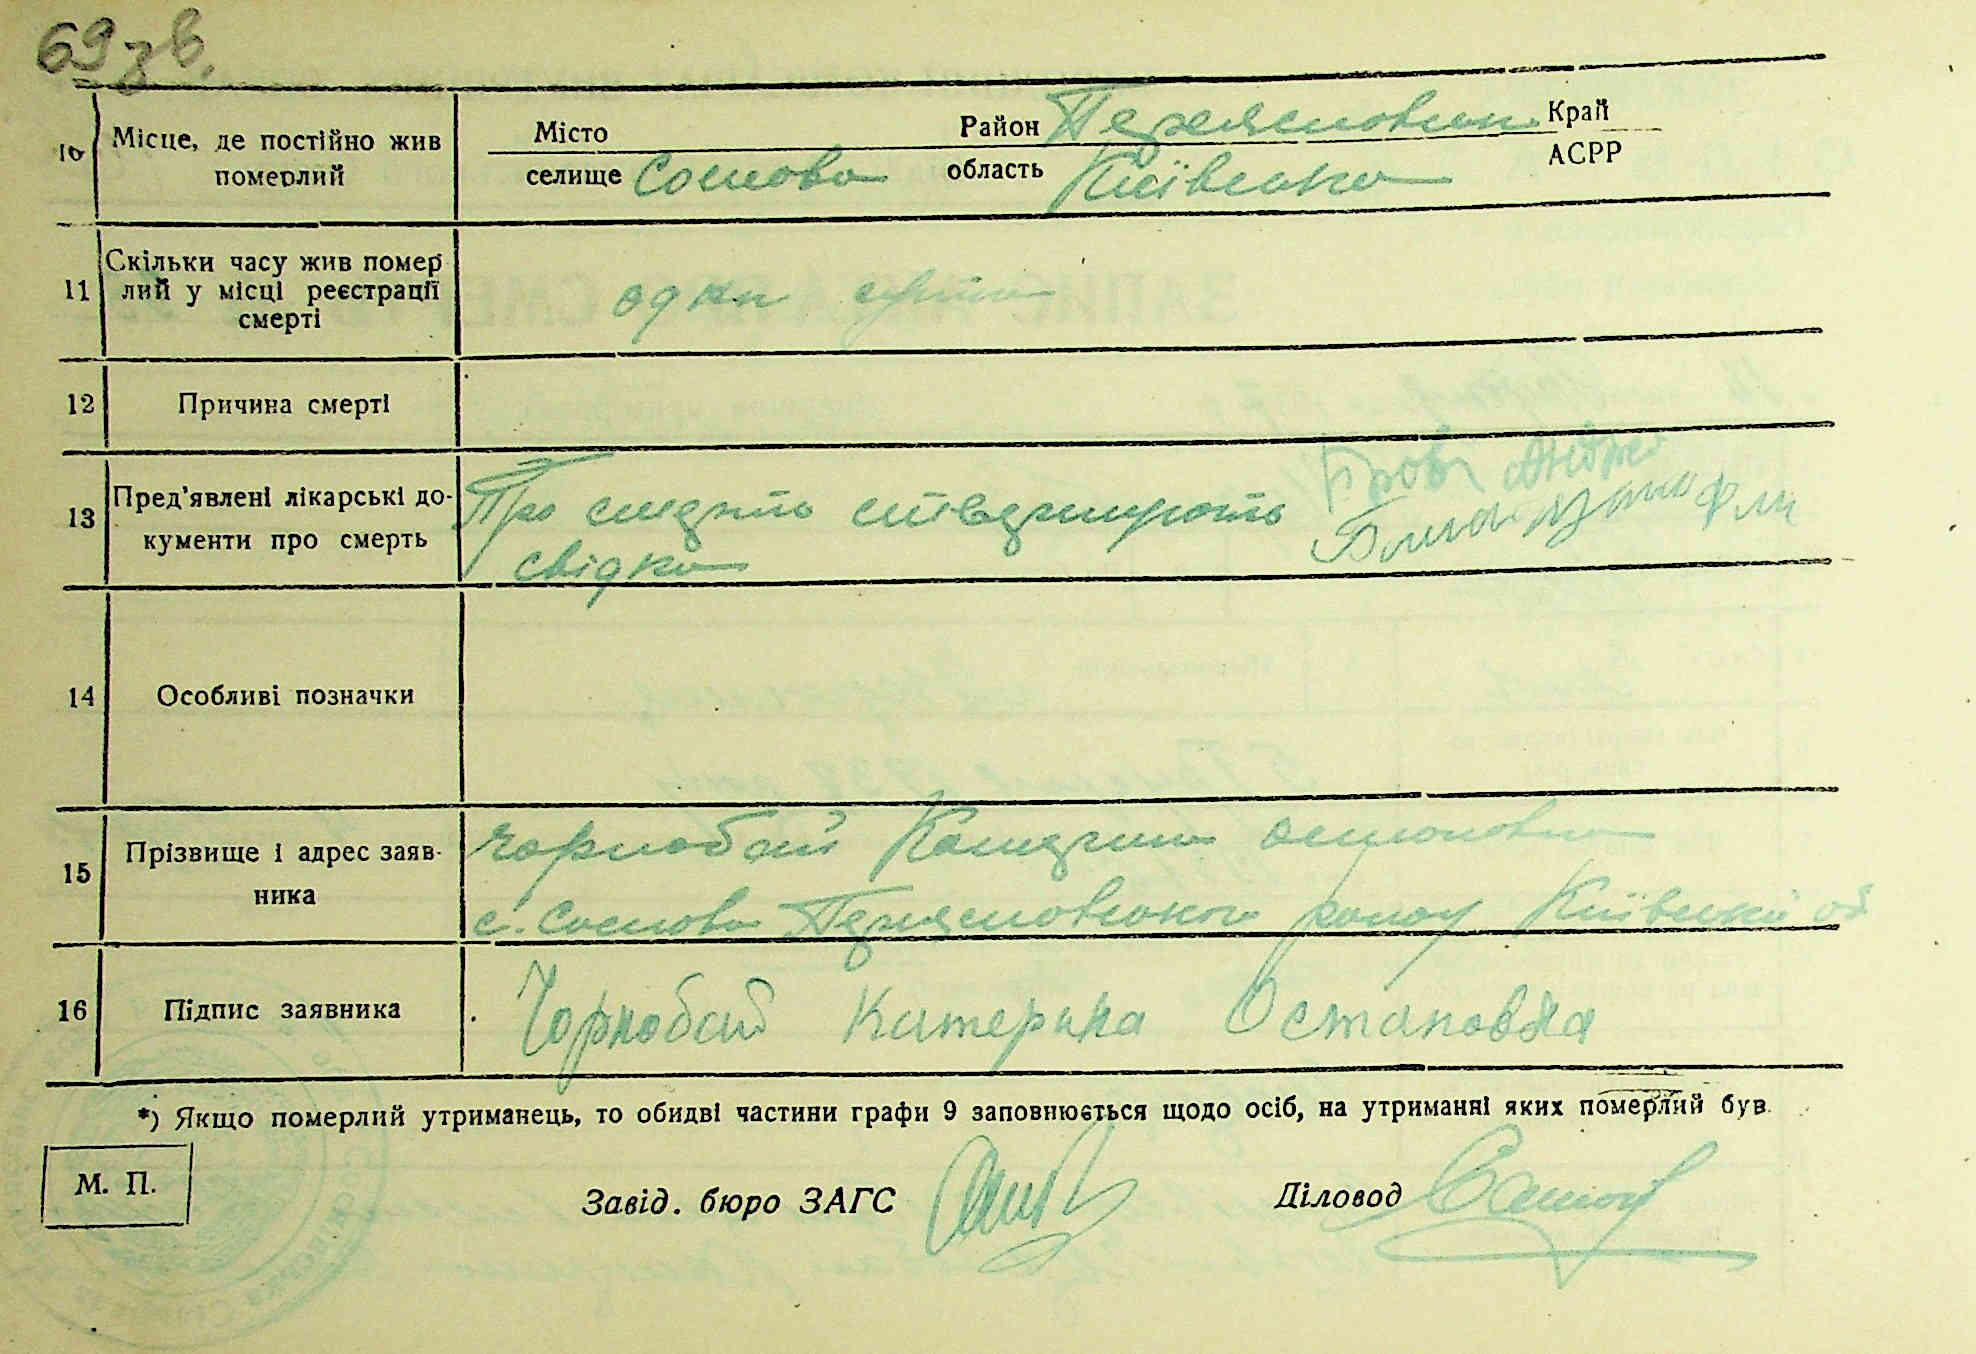 69 зв.
10 Місце, де постійно жив померлий
Місто
селище Соснова
Район Переяславськ
область Київська
Край
АСРР
11 Скільки часу жив помер
лий у місці реєстрації
смерті
одни сутки
12 Причина смерті
13 Пред'явлені лікарські до-
кументи про смерть
Про смерть стверджують
свідки
14 Особливі позначки
15 Прізвище і адрес заяв-
ника
Чорнобай Катерина Остаповна
с. Соснова Переяславського району Київської об
16 Підпис заявника
Чорнобай Катерина Остаповна
*) Якщо померлий утриманець, то обидві частини графи 9 заповнюється щодо осіб, на утриманні яких померлий був.
М. П.
Завід. бюро ЗАГС
Діловод